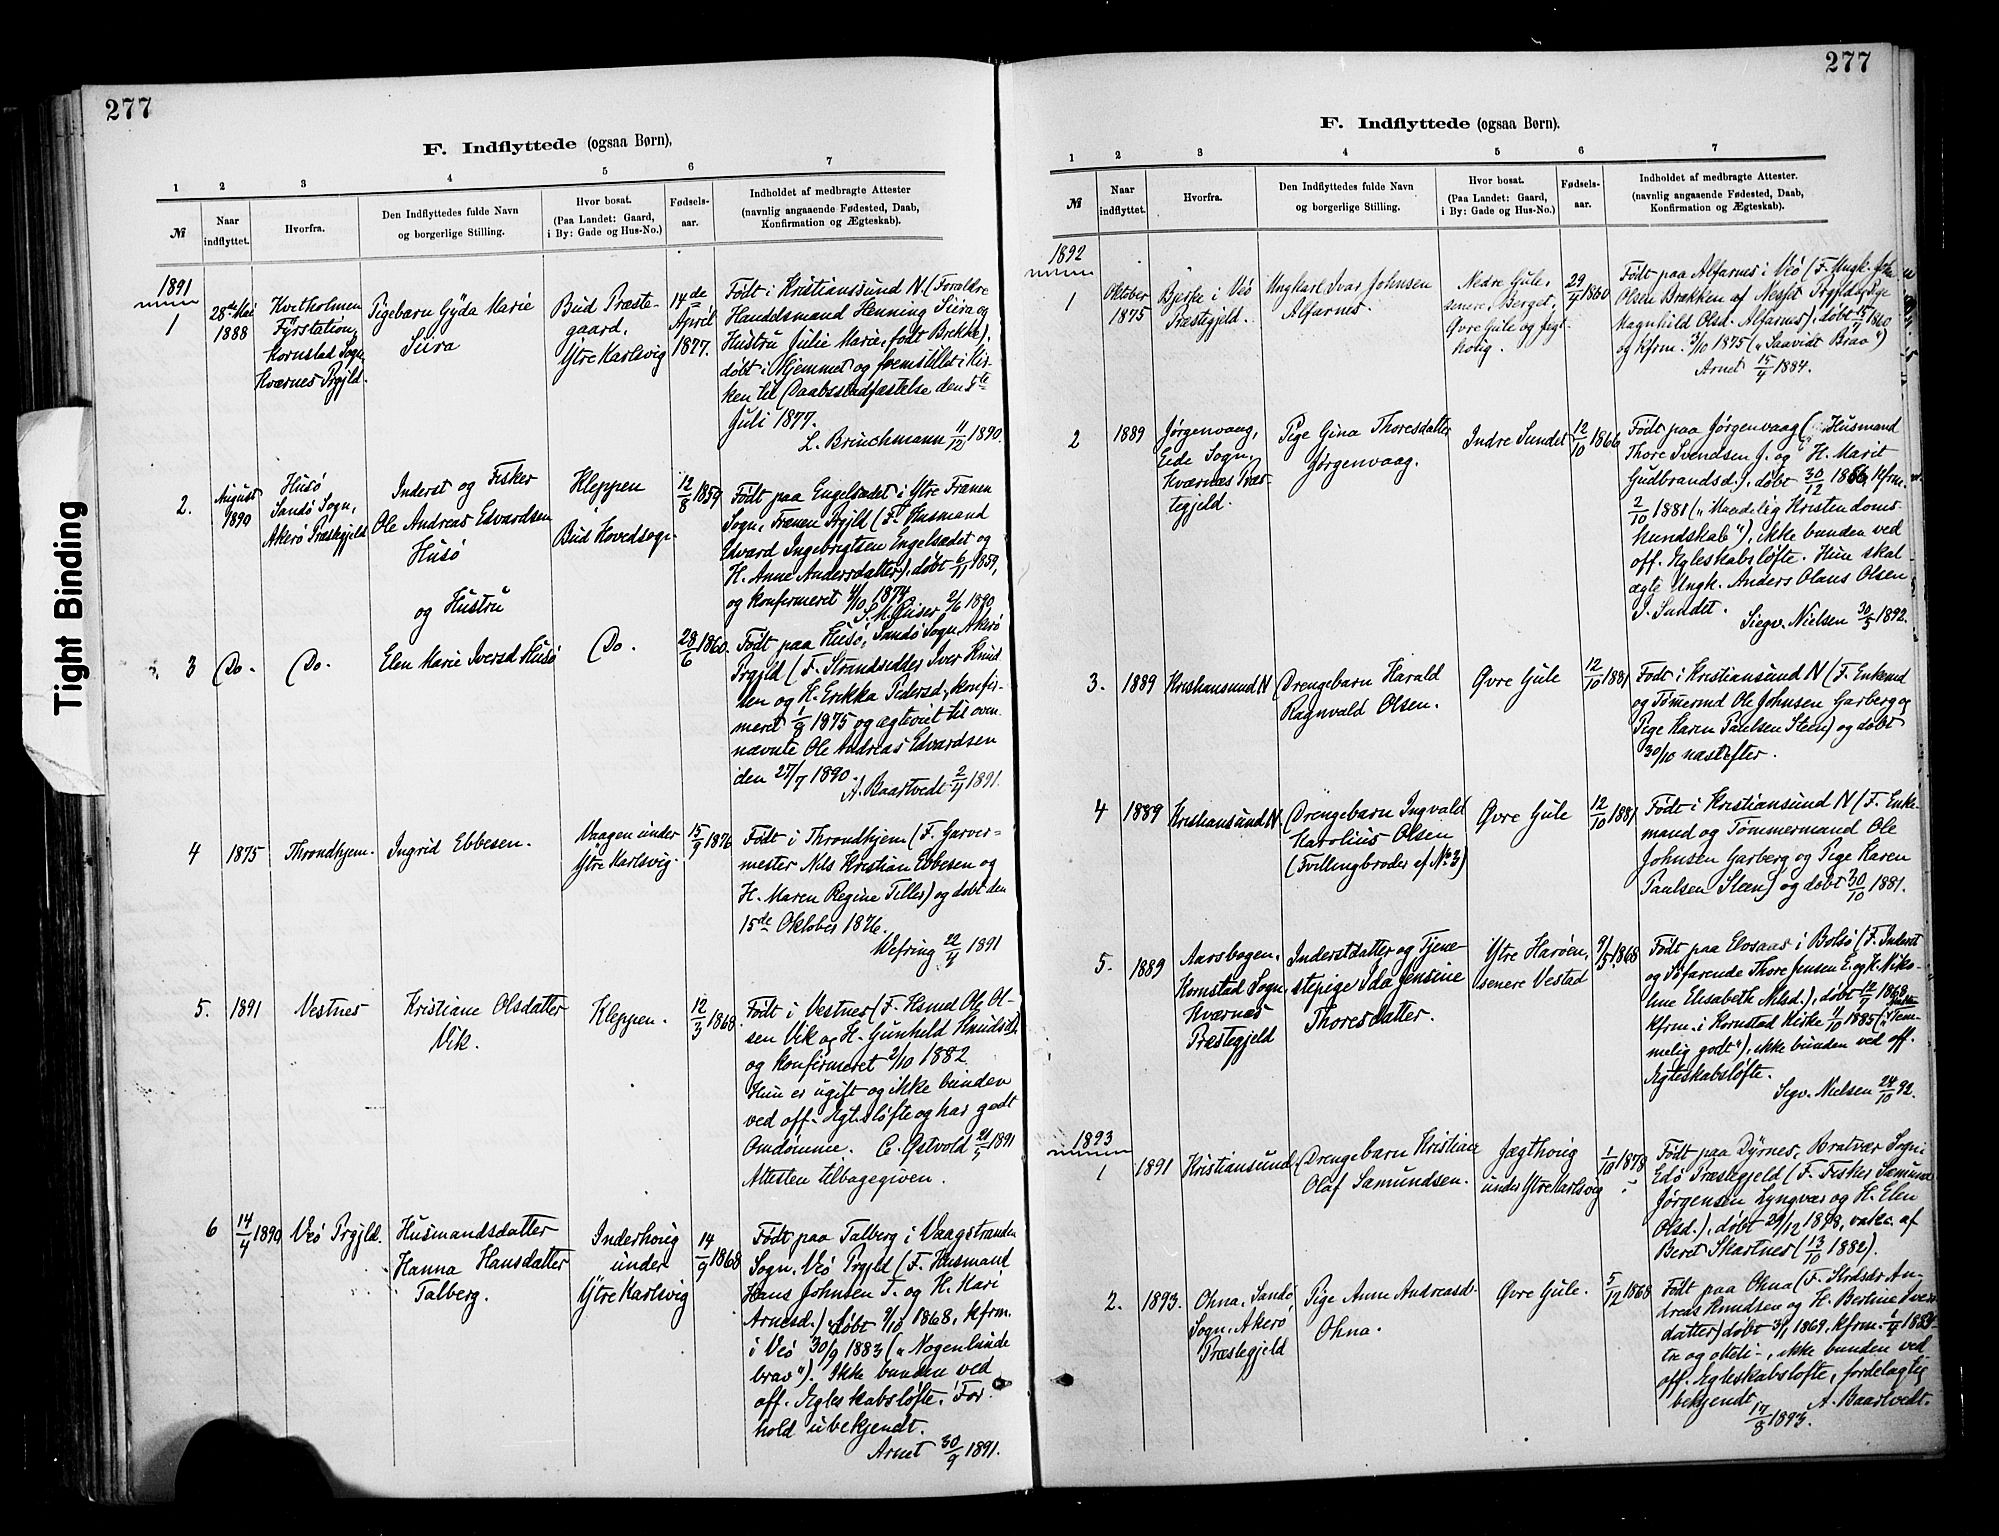 277
F. Indflyttede (ogsaa Børn),
1 2 3 4 5 6 7
№
Naar
indflyttet.
Hvorfra.
Den Indflyttedes fulde Navn
og borgerlige Stilling.
Hvor bosat.
(Paa Landet: Gaard,
i By: Gade og Hus-No.)
Fødsels-
aar.
Indholdet af medbragte Attester
(navnlig angaaende Fødested, Daab,
Konfirmation og Ægteskab).
1891
1
28de Mai
1888
Kvitholmen
Fyrstation,
Kornstad Sogn
Kværnes Prgjld.
Pigebarn Gyda Marie
Siira
Bud Præste-
gaard,
Ytre Karlsvig
14de
April
1877.
Født i Kristianssund N (Forældre
Handdsmand Henning Siira og
Hustru Julie Marie, født Brekke),
døbt i Hjemmet og fremstillet i Kir-
ken til Daabsstadfæstelse den
Juli 1877.
L. Brinchmann 11/12 1890.
2.
August
1890
Husø
Sandø Sogn,
Akerø Præstegjeld
Inderst og Fisker
Ole Andreas Edvardsen
Husø
og Hustru
Kleppen
Bud Hovedsogn
12/8 1859
Født paa Engelsædet i Ytre Frænen
Sogn, Frænen Prgjld (F. Husmand
Edvard Ingebrigtsen Engelsædet og
H. Anne Andersdatter), døbt 6/11 1859,
og konfirmeret 4/10 1874.
2/6 1890
3
Do.
Do.
Elen Marie Iversd Husø
Do.
28/6 1860.
Født paa Husø, Sandø Sogn, Akerø
Prgjld (F. Strandsidder Iver Knud-
sen og H. Erikka Pedersd., konfir-
meret 1/8 1875 og ægteviet til oven-
nævnte Ole Andreas Edvardsen
den 27/7 1890.
A. Baartvedt 2/4 1891.
4
1875
Throndhjem.
Ingrid Ebbesen.
Vaagen under
Ytre Karlsvig.
15/9 1876
Født i Throndhjem (F. Garver-
mester Nils Kristian Ebbesen og
H. Maren Regine Tiller) og døbt den
15de Oktober 1876.
Wefring 22/4 1891
5.
1891
Vestnes
Kristiane Olsdatter
Vik.
Kleppen.
12/3 1868.
Født i Vestnes (F. Hsmd Ol. Ol-
sen Vik og H. Gunhild Knudsd.),
og konfirmeret 2/10 1882
Hun er ugift og ikke bunden
ved off. Ægtesløfte og har godt
Omdømme. C. Østvold 1891
Attesten tilbagegiven.
6
14/4 1890
Veø Prgjld.
Husmandsdatter
Hanna Hansdatter
Talberg.
Inderhovig
under
Ytre Karlsvig
14/9 1868
Født paa Talberg i Vaagstranden
Sogn, Veø Prgjld (F. Husmand
Hans Johnsen T. og H. Kari
Arnesd.) døbt 1868, kfrm.
i Veø 30/9 1883 („Nogenlunde
brav"). Ikke bunden ved
off. Ægteskabsløfte. For-
hold ubekjendt.
Arnet 30/9 1891.
277
F. Indflyttede (ogsaa Børn).
1 2 3 4 5 6 7
№
Naar
indflyttet.
Hvorfra.
Den Indflyttedes fulde Navn
og borgerlige Stilling.
Hvor bosat.
(Paa Landet: Gaard,
i By: Gade og Hus-No.)
Fødsels-
aar.
Indholdet af medbragte Attester.
(navnlig angaaende Fødested, Daab,
Konfirmation og Ægteskab).
1892
1
Oktober
1875
Bjerke i Veø
Præstegjeld.
Ungkarl Ivar Johnsen
Alfarnes.
Nedre Gule,
senere Berget,
Øvre Gule og Jægt-
hovig.
29/4 1860
Født paa Alfarnes i Veø (F. Ungk. John
Olsen Brækken af Nesset Prgjld, Pige
Magnhild Olsd. Alfarnes), døbt 1860
og kfrm. 3/10 1875 („Saavidt Brav")
Arnet 15/4 1884.
2
1889
Jørgenvaag,
Eide Sogn,
Kværnes Præs-
tegjeld.
Pige Gina Thoresdatter
Jørgenvaag.
Indre Sundet
12/10 1866
Født paa Jørgenvaag (Husmand
Thore Svendsen J. og H. Marit
Gudbrandsd.), døbt 30/12 1866, kfrm.
2/10 1881 („Maadelig Kristendoms-
kundskab"), ikke bunden ved
off. Ægteskabsløfte. Hun skal
ægte Ungk. Anders Olaus Olsen
I. Sundet.
Siegv. Nielsen 30/5 1892.
3.
1889
Kristiansund N
Drengebarn Harald
Ragnvald Olsen.
Øvre Gule
12/10 1881
Født i Kristiansund N (F. Enkemd
og Tømermd Ole Johnsen Garberg og
Pige Karen Paulsen Steen) og døbt
30/10 næstefter.
4
1889
Kristiansund N
Drengebarn Ingvald
Karolius Olsen
(Tvillingbroder af № 3)
Øvre Gule
12/10 1881
Født i Kristiansund N (F. Enke-
mand og Tømmermand Ole
Johnsen Garberg og Pige Karen
Paulsen Steen) og døbt 30/10 1881.
5.
1889
Aarsbogen,
Kornstad Sogn
Kværnes
Præstegjeld
Inderstdatter og Tjene-
stepige Ida Jensine
Thoresdatter.
Ytre Harøen,
senere Vestad
9/5 1868
Født paa Elvsaas i Bolsø (F. Inderst
og Søfarende Thore Jensen E. og H. Niko-
line Elisabeth Nilsd.), døbt 12/7 1868,
kfrm. i Kornstad Kirke 4/10 1885 („Tem-
melig godt"), ikke bunden ved off.
Ægteskabsløfte.
Segv. Nielsen 24/10 92.
1893
1
1891
Kristiansund.
Drengebarn Kristian
Olaf Samundsen.
Jægthovig
under Ytre Karlsvig
1/10 1878
Født paa Dyrnes, Bratvær Sogn
Edø Præstegjeld (F. Fisker Samund
Jørgensen Lyngvær og H. Elen
Olsd.), døbt 29/12 1878, vakc. af
Beret Skartnes (13/10 1882).
2.
1893.
Ohna, Sandø
Sogn, Akerø
Præstegjeld
Pige Anne Andreasd.
Ohna.
Øvre Gule.
5/12 1868
Født paa Ohna (F. Strdsdr An-
dreas Knudsen og H. Berthine Ivers-
datter) døbt 3/1 1869, kfrm. 1884
ikke bunden ved
off. Ægteskabsløfte, fordelagtig
bekjendt. A. Baartvedt.
17/8 1893.
Tight Binding